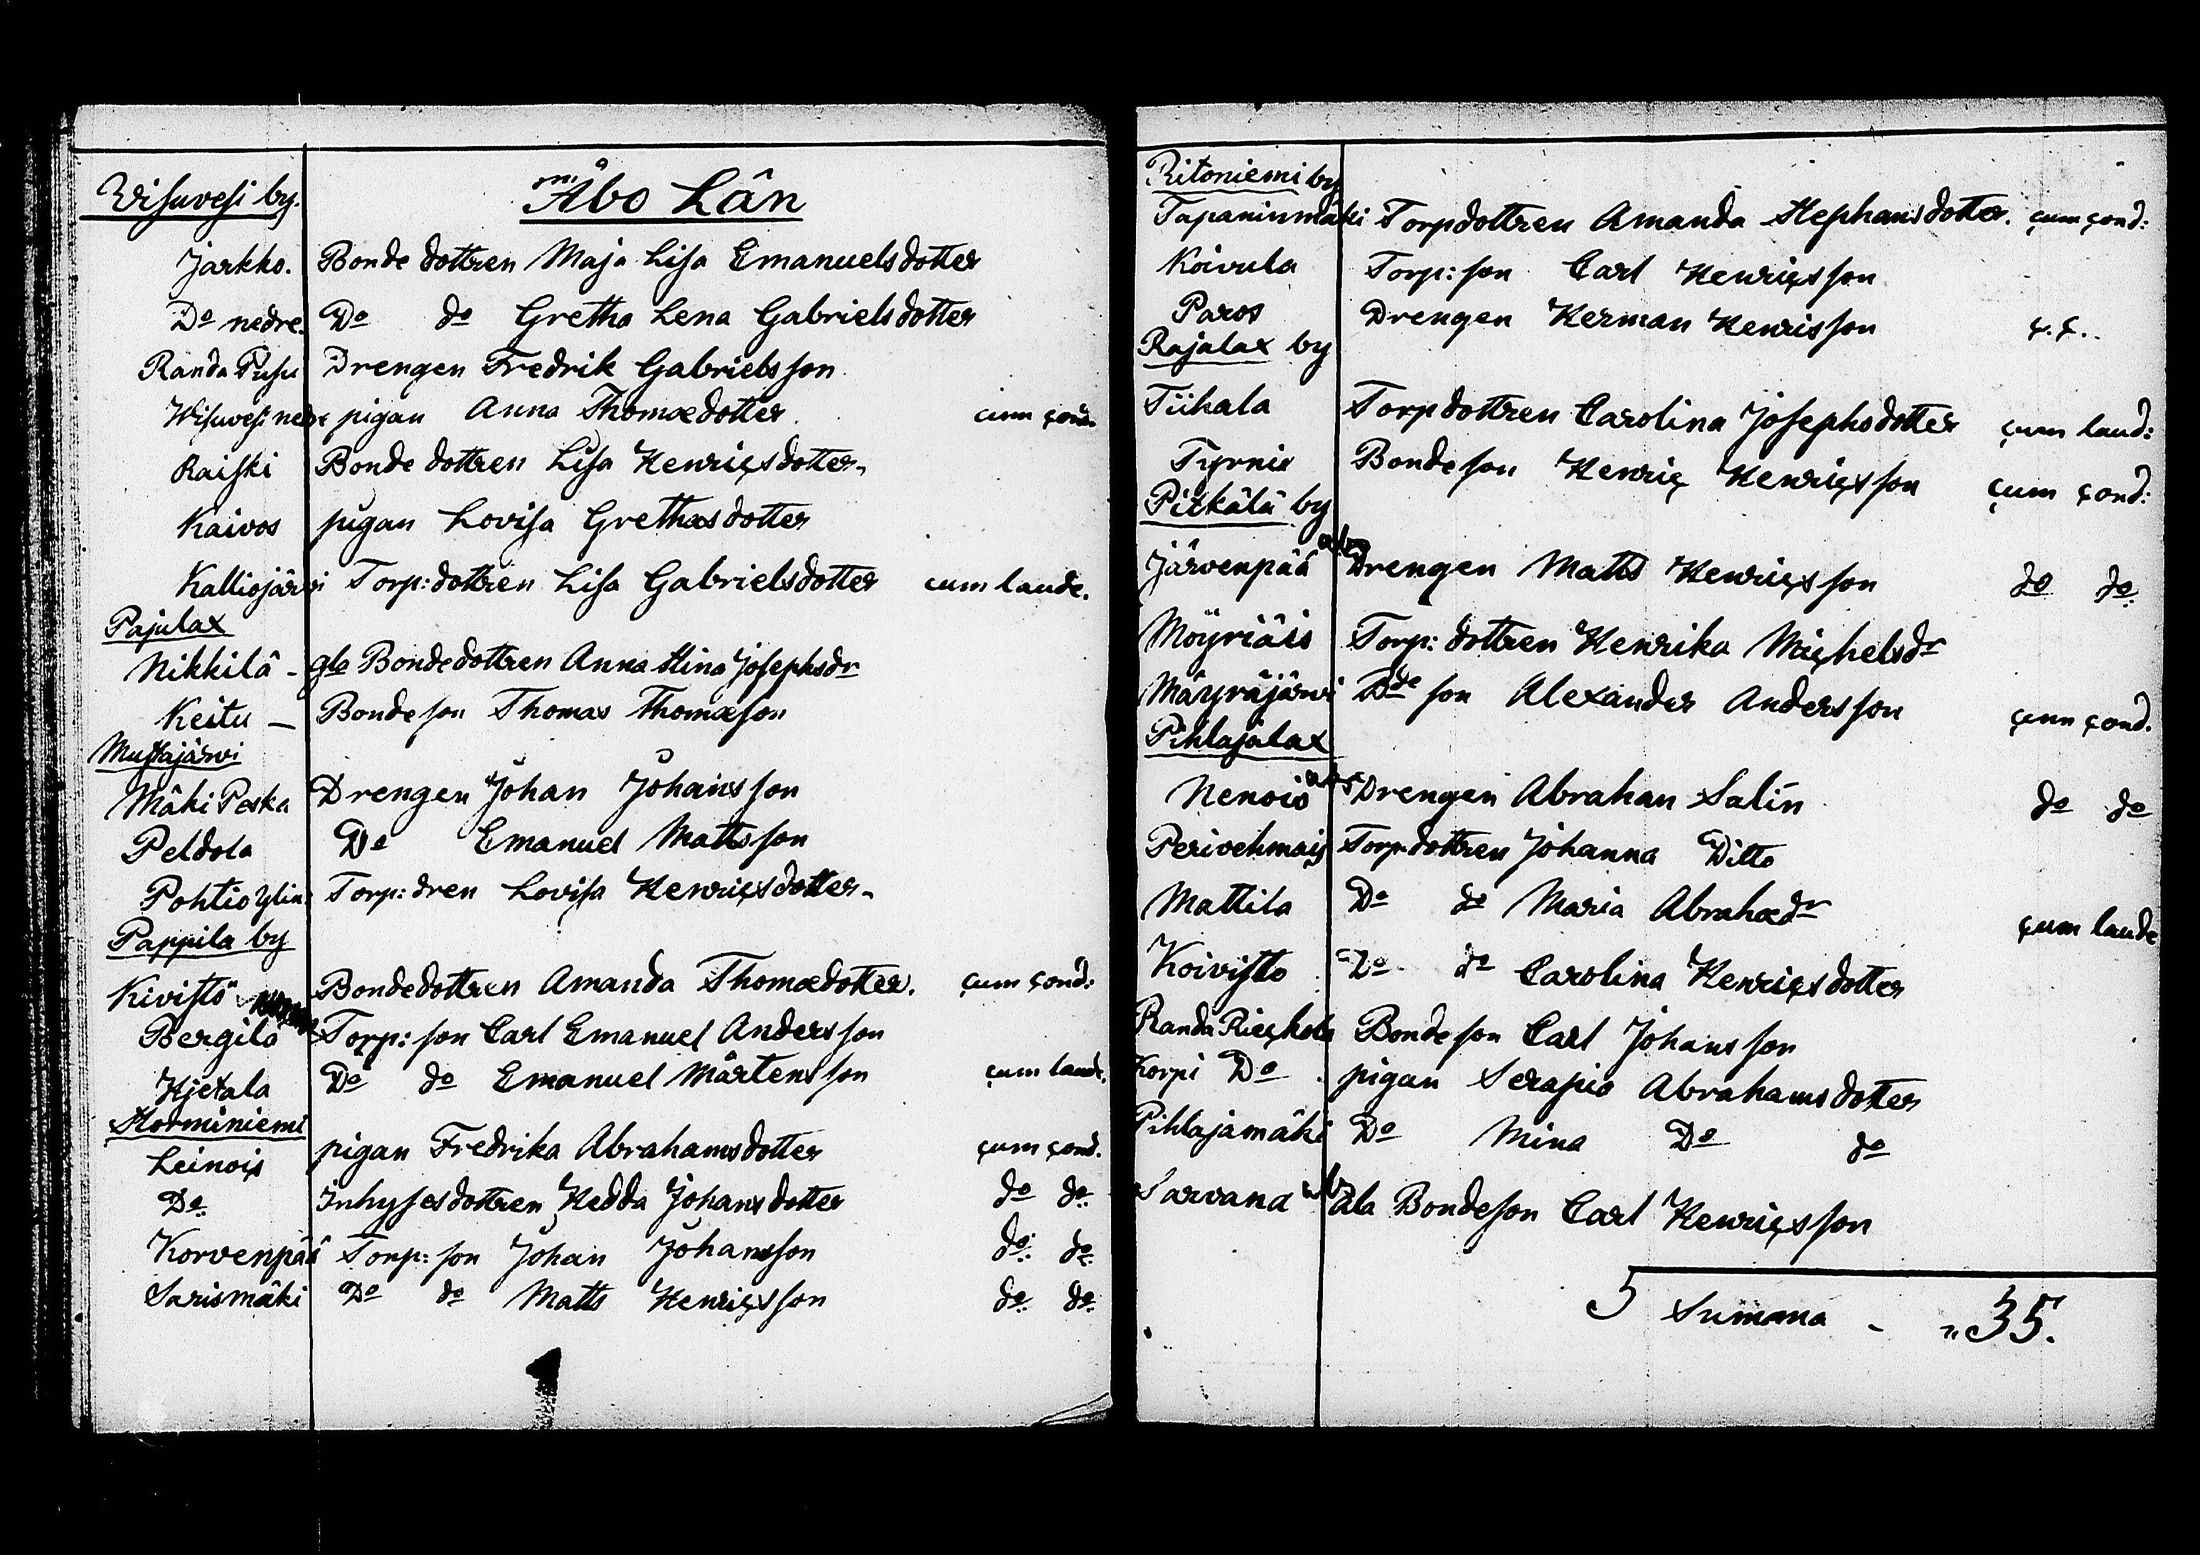 Wisuvesi by.
Åbo Län
Jarkko. Bonde dottren Maja Lisa Emanuelsdotter
Do nedre. Do do Gretha Lena Gabrielsdotter
Randa Pusu Drengen Fredrik Gabrielsson
Wisuvesi nedr pigan Anna Thomædotter. cum cond:
Raiski Bonde dottren Lisa Henricsdotter
Kaivos pigan Lovisa Grethasdotter
Kalliojärvi Torp: dottren Lisa Gabrielsdotter cum laude.
Pajulax
Nikkilä - gla Bondedottren Anna Stina Josephsdr
Keitu - Bondeson Thomas Thomæson
Mustajärvi
Mäki Peska Drengen Johan Johansson
Peldola Do Emanuel Mattsson
Pohtio Ylin: Torp: dren Lovisa Henricsdotter
Pappila by
Kivistö Bondedottren Amanda Thomædotter. cum cond:
Bergilä Torp: son Carl Emanuel Andersson
Hjetala Do do Emanuel Mårtensson cum laude.
Storminiemi
Leinois pigan Fredrika Abrahamsdotter cum cond.
Do. Inhysesdottren Hedda Johansdotter do do
Korvenpää Torp: son Johan Johansson do do
Sarismäki Do do Matts Henricsson do do
Ritoniemi by
Tapaninmäki Torpdottren Amanda Stephansdotter. cum cond:
Koivula Torp: son Carl Henricsson
Paros Drengen Herman Henrisson c.c.
Rajalax by
Tiihala Torpdottren Carolina Josephsdotter cum laud:
Tyrnis Bondeson Henric Henricsson cum cond:
Pitkälä by
Järvenpää abs Drengen Matts Henricsson do do
Möyriäis Torp: dottren Henrika Michelsdr
Mäyräjärvi Bde son Alexander Andersson cum cond.
Pihlajalax
Nenois abs Drengen Abraham Salin do do
Perivehmais Torpdottren Johanna Ditto
Mattila Do do Maria Abrahædr cum laude
Koivisto Do do Carolina Henricsdotter
Randa Riechola Bondeson Carl Johansson
Korpi Do pigan Serapia Abrahamsdotter
Pihlajamäki Do Mina Do do
Sarvana abs äla Bondeson Carl Henricsson
5 Summa - " 35.